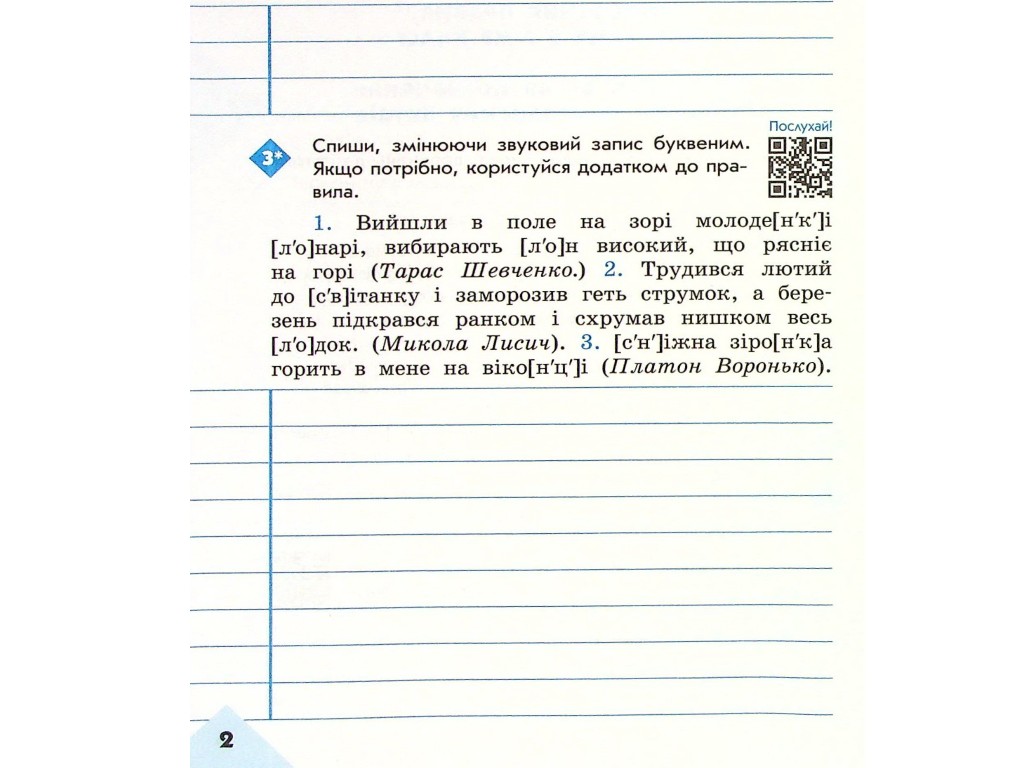 Послухай!
3*
Спиши, змінюючи звуковий запис буквеним.
Якщо потрібно, користуйся додатком до пра-
вила.
1. Вийшли в поле на зорі молоде[н′к′]і
[л′о]нарі, вибирають [л′о]н високий, що рясніє
на горі (Тарас Шевченко.) 2. Трудився лютий
до [с′в]ітанку і заморозив геть струмок, а бере-
зень підкрався ранком і схрумав нишком весь
[л′о]док. (Микола Лисич). 3. [с′н′]іжна зіро[н′к]а
горить в мене на віко[н′ц′]і (Платон Воронько).
2